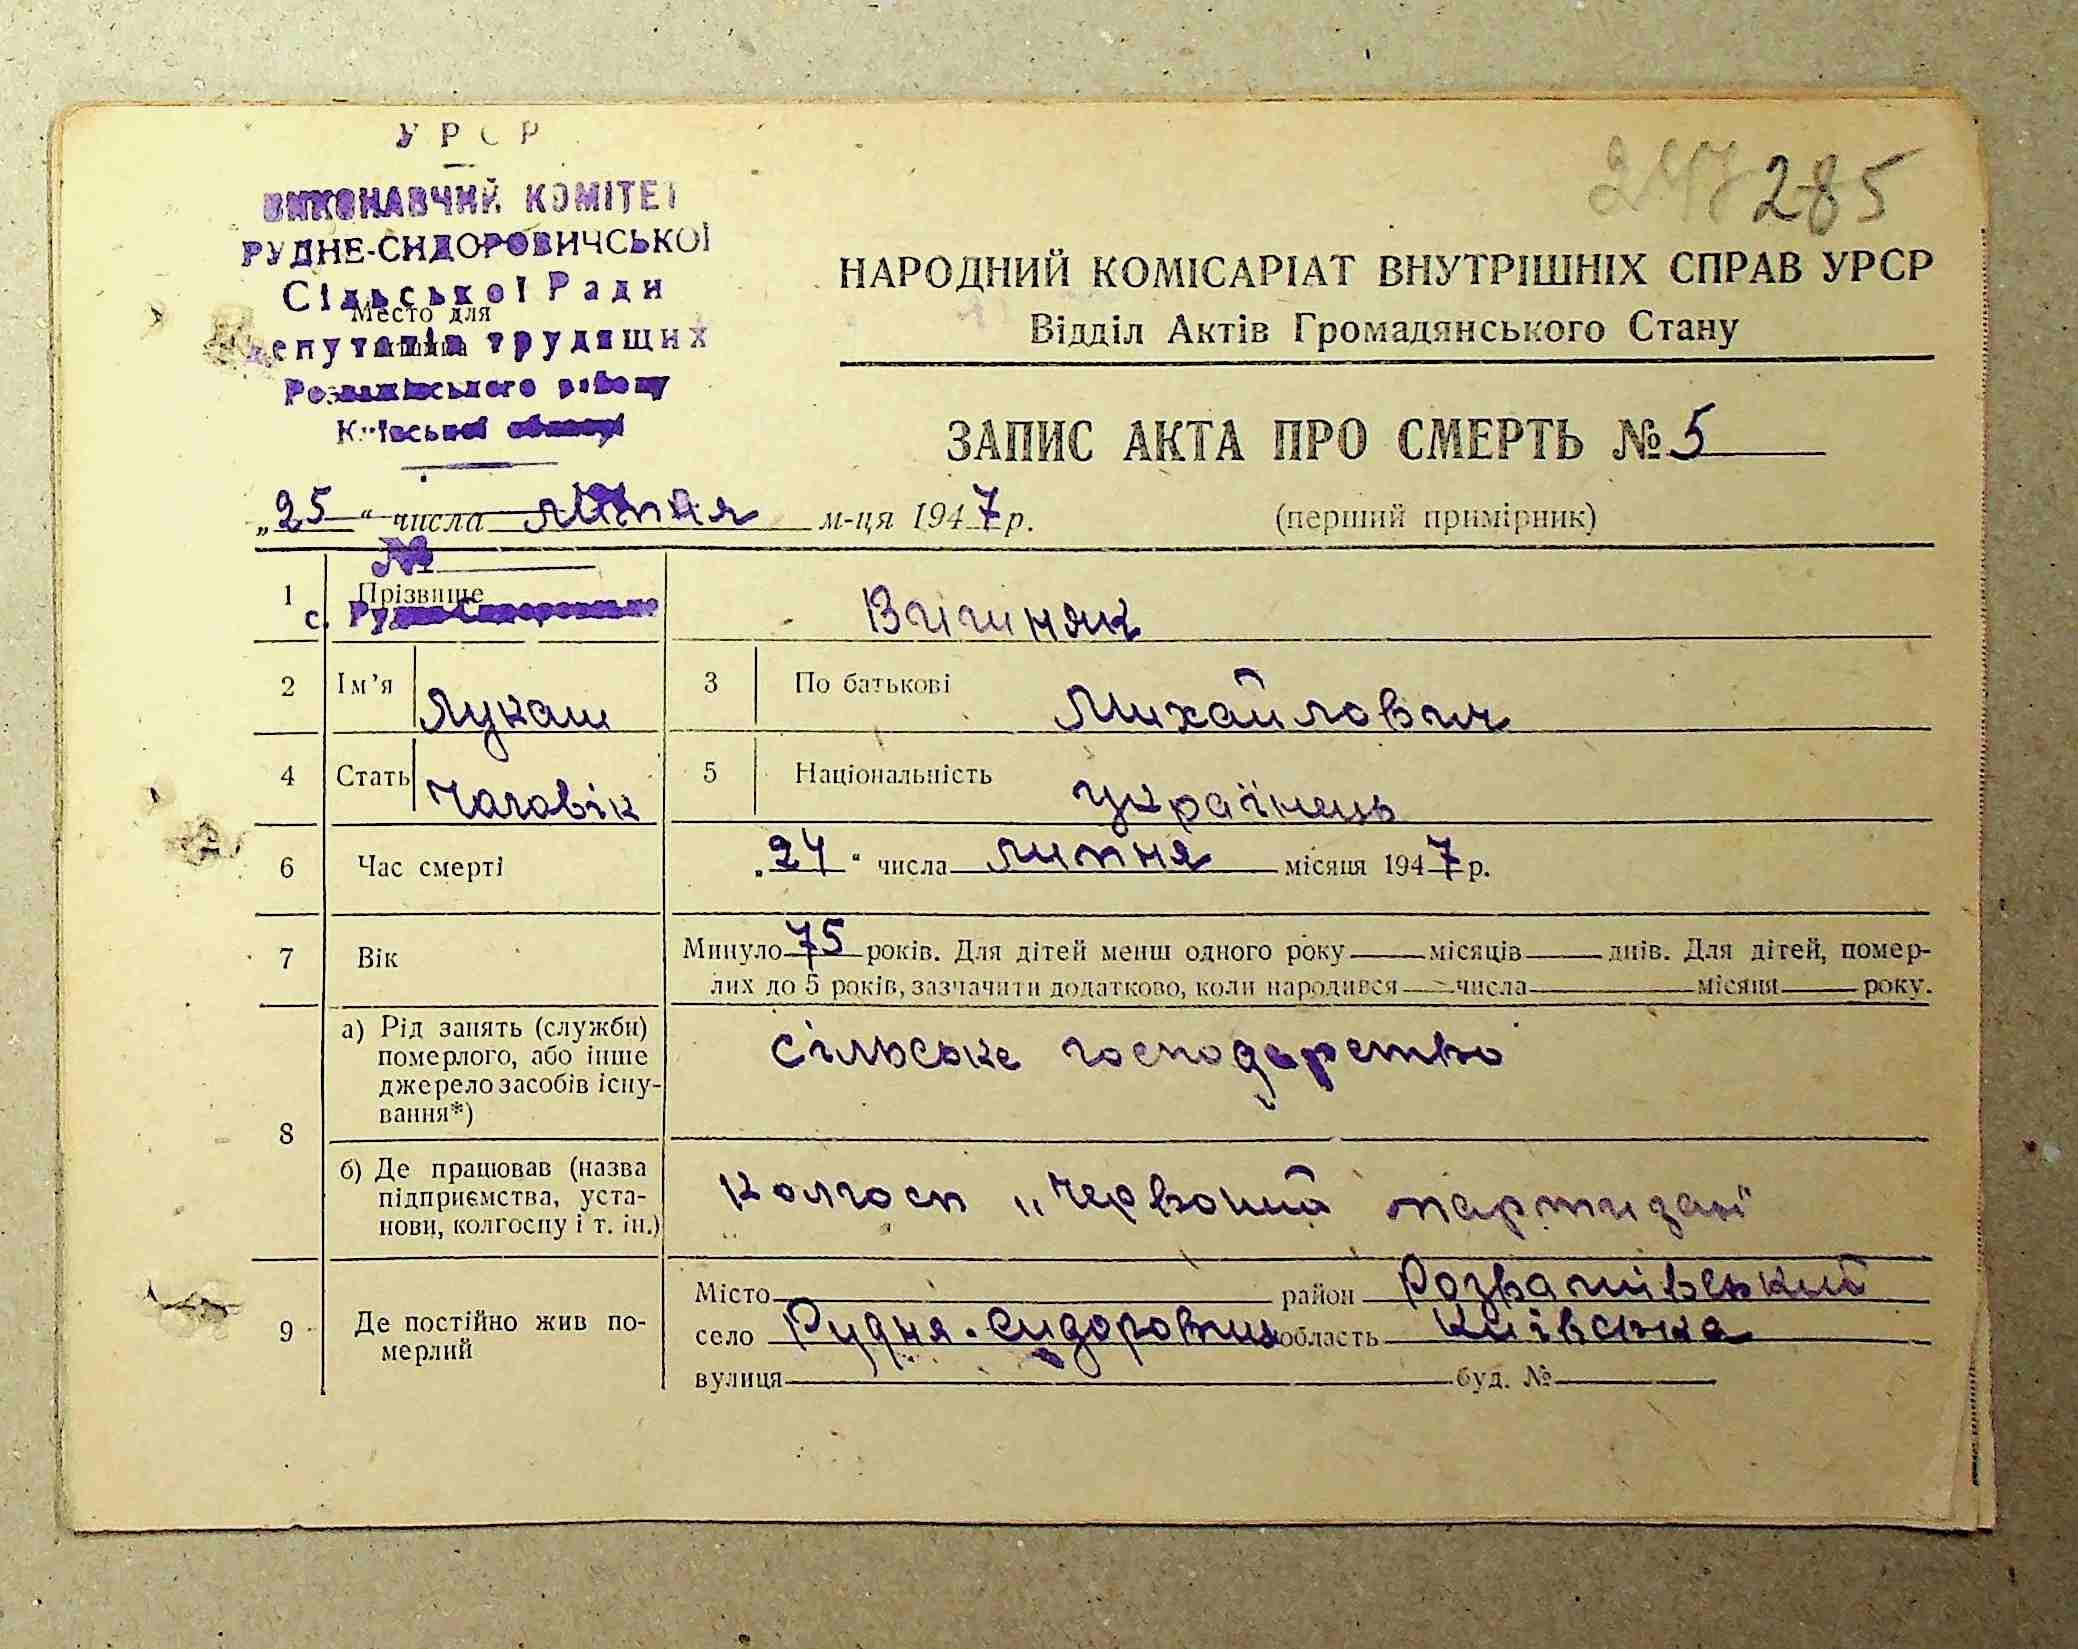 УРСР
ВИКОНАВЧИЙ КОМІТЕТ
РУДНЕ-СИДОРОВИЧСЬКОЇ
Сільської Ради
Место для
депутатів трудящих
Розважівського району
Київської області
247 285
НАРОДНИЙ КОМІСАРІАТ ВНУТРІШНІХ СПРАВ УРСР
Відділ Актів Громадянського Стану
ЗАПИС АКТА ПРО СМЕРТЬ № 5
„25“ числа липня м-ця 1947 р. (перший примірник)
№
1 Прізвище
с. Рудня-Сидоровська
2 Ім’я Лукаш 3 По батькові Михайлович
4 Стать Чоловік 5 Національність українець
6 Час смерті „24“ числа липня місяця 1947 р.
7 Вік Минуло 75 років. Для дітей менш одного року місяців днів. Для дітей, помер-
лих до 5 років, зазначити додатково, коли народився числа місяця року.
8 а) Рід занять (служби) померлого, або інше джерело засобів існу-вання*) сільське господарство
б) Де працював (назва підприємства, уста-нови, колгоспу і т. ін.) колгосп „Червоний партизан“
9 Де постійно жив по-мерлий
Місто район Розважівський
село Рудня-Сидоровичі область Київська
вулиця буд. №